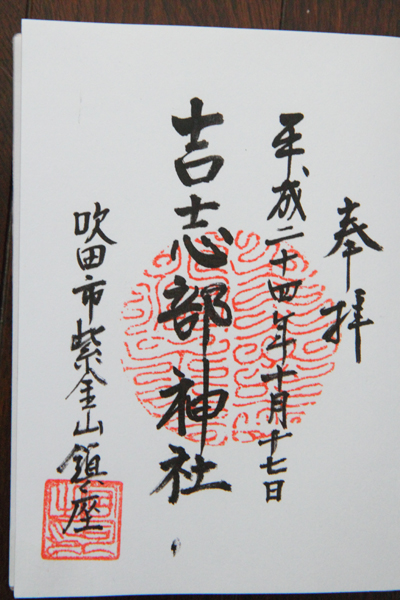 奉拝
平成二十四年十月十七日
吉志部神社
吹田市紫金山鎮座